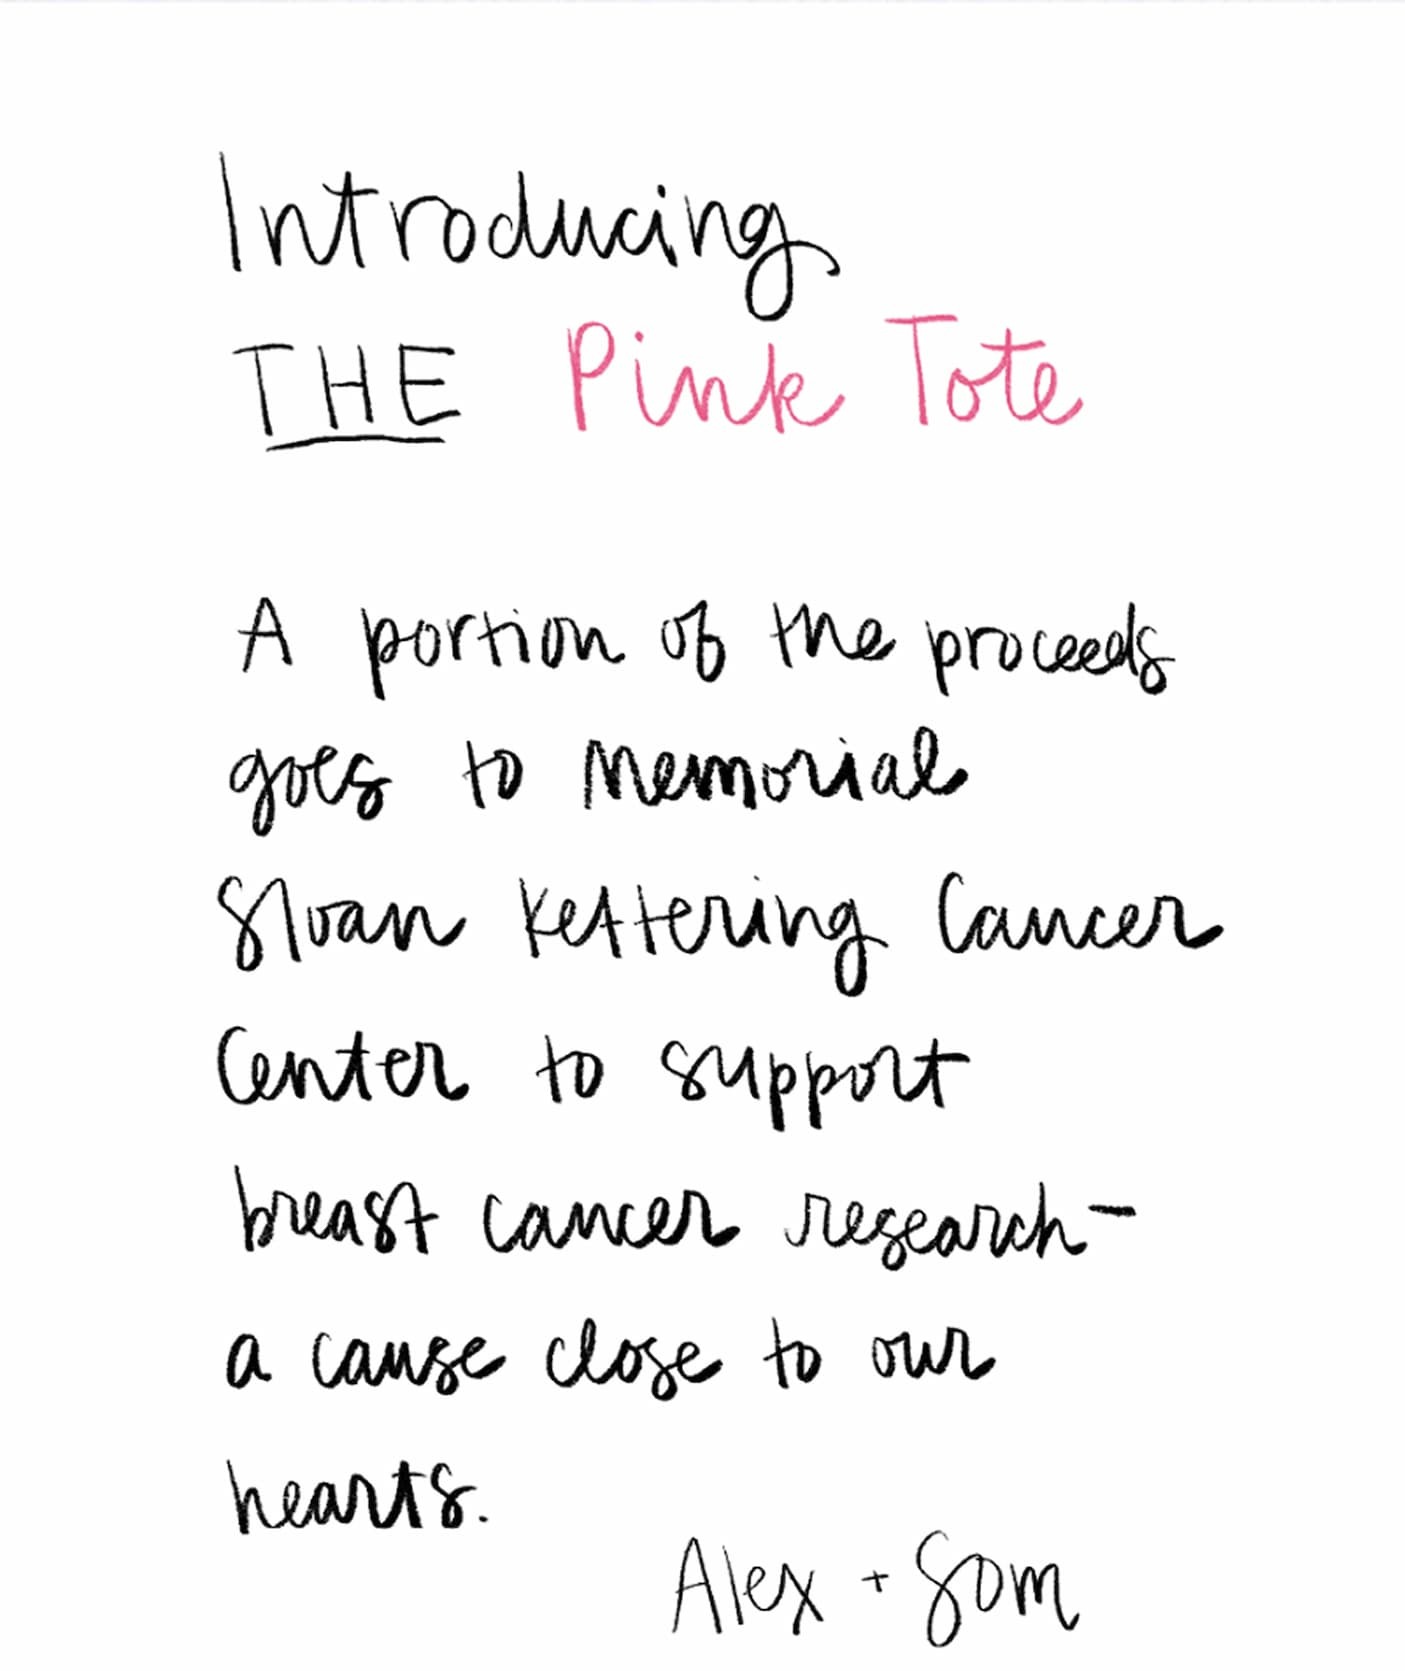 Introducing
THE Pink Tote
A portion of the proceeds
goes to Memorial
Sloan Kettering Cancer
Center to support
breast cancer research-
a cause close to our
hearts.
Alex + Som